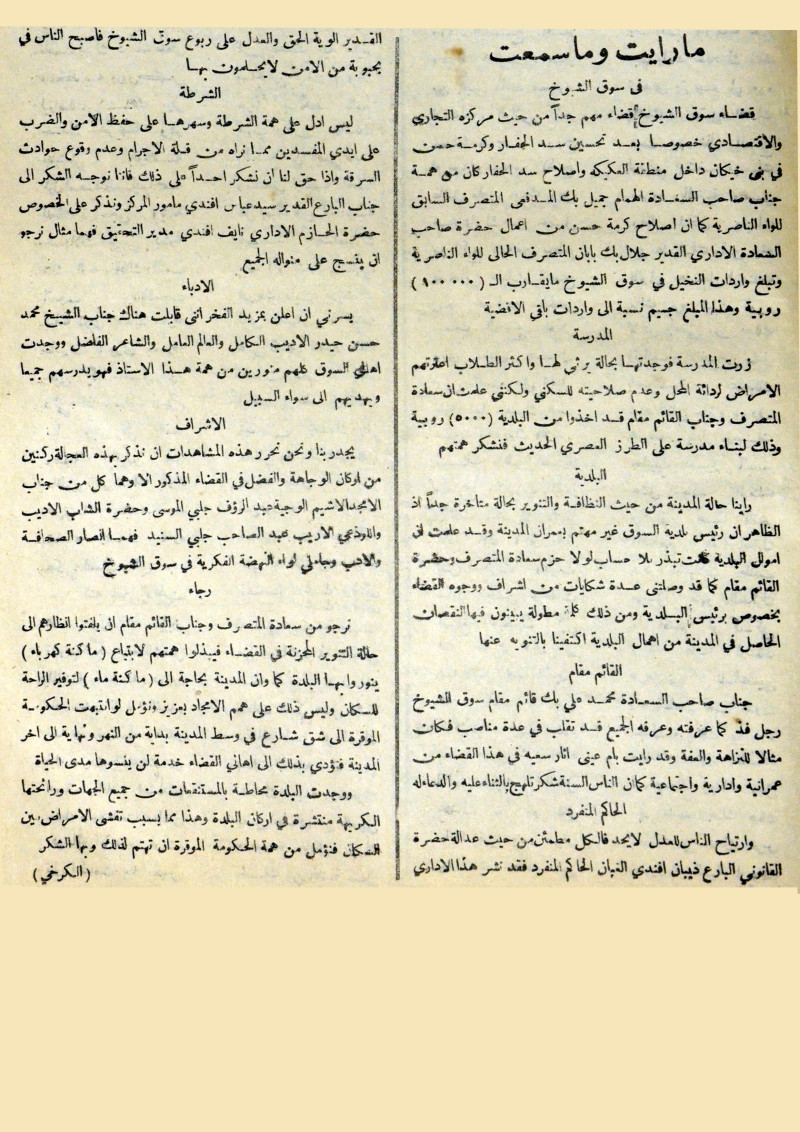 مارايت وماسمعت
في سوق الشيوخ
قضاء سوق الشيوخ قضاء مهم جداً من حيث مركزه التجاري
والاقتصادي خصوصا بعد تحسين سد الحفار وكرمة حسن
في بني خيكان داخل منطقة العكيكه واصلاح سد الحفار كان من همة
جناب صاحب السعادة الهمام جميل بك المدفعي المتصرف السابق
للواء الناصرية كما ان اصلاح كرمة حسن من اعمال حضرة صاحب
السعادة الاداري القدير جلال بك بابان المتصرف الحالى للواء الناصرية
وتبلغ واردات النخيل في سوق الشيوخ مايقارب الـ ( ٩٠٠٠٠٠ )
روبية وهذا المبلغ جسيم نسبة الى واردات باقي الاقضية
المدرسة
زرت المدرسة فوجدتها بحالة يرثي لها واكثر الطلاب اعترتهم
الامراض لردائة المحل وعدم صلاحيته للسكنى ولكنني علمت ان سعادة
المتصرف وجناب القائم مقام قد اخذوا من البلدية (٥٠٠٠) روبية
وذلك لبناء مدرسة على الطرز العصري الحديث فنشكر همتهم
البلدية
راينا حالة المدينة من حيث النظافة والتنوير بحالة متاخرة جداً اذ
الظاهر ان رئيس بلدية السوق غير مهتم بعمران المدينة وقد علمت ان
اموال البلدية كانت تبذر بلا حساب لولا حزم سعادة المتصرف وحضرة
القائم مقام كما قد وصلتنى عدة شكايات من اشراف ووجوه القضاء
بخصوص برئيس البلدية ومن ذلك كلمة مطولة يبينون فيها النقصان
الحاصل في المدينة من اهمال البلدية اكتفينا بالتنويه عنها
القائم مقام
جناب صاحب السعادة محمد علي بك قائم مقام سوق الشيوخ
رجل فذ كما عرفته وعرفه الجميع قد تقلب في عدة مناصب فكان
مثالا للنزاهة والعفة وقد رايت بام عينى اثار سعيه في هذا القضاء من
عمرانية وادارية واجتماعية كما ان الناس السنة شكر تلهج بالثناء عليه والدعاء له
الحاكم المنفرد
وارتياح الناس للعدل لايحد فالكل مطمئن من حيث عدالة حضرة
القانوني البارع ذيبان افندي الغبان الحاكم المنفرد فقد نشر هذا الاداري
القدير الوية الحق والعدل على ربوع سوق الشيوخ فاصبح الناس في
بحبوبة من الامن لايحلمون بها
الشرطة
ليس ادل على همة الشرطة وسهرها على حفظ الامن والضرب
على ايدي المفسدين مما نراه من قلة الاجرام وعدم وقوع حوادث
السرقة واذا حق لنا ان نشكر احداً على ذلك فاننا نوجه الشكر الى
جناب البارع القدير سيد عباس افندي مامور المركز ونذكر على الخصوص
حضرة الحازم الاداري نايف افندي مدير التحقيق فهما مثال نرجو
ان ينسج على منواله الجميع
الادباء
يسرني ان اعلن بمزيد الفخر اننى قابلت هناك جناب الشيخ محمد
حسن حيدر الاديب الكامل والعالم العامل والشاعر الفاضل ووجدت
اهالي السوق كلهم منورين من همة هذا الاستاذ فهو يدرسهم جميعا
ويهديهم الى سواء السبيل
الاشراف
يجدر بنا ونحن نحرر هذه المشاهدات ان نذكر بهذه العجالة ركنين
من اركان الوجاهة والفضل في القضاء المذكور الا وهما كل من جناب
الامجد الاشيم الوجيه عبد الرؤف جلبي الموسى وحضرة الشاب الاديب
واللوذعي الاريب عبد الصاحب جلبي السنيد فهما انصار الصحافة
والادب وحاملي لواء النهضة الفكرية في سوق الشيوخ
رجاء
نرجو من سعادة المتصرف وجناب القائم مقام ان يلفتوا انظارهم الى
حالة التنوير المحزنة في القضاء فيبذلوا همتهم لابتياع ( ماكنة كهرباء )
ينوروا بها البلدة كما وان المدينة بحاجة الى ( ماكنة ماء ) لتوفير الراحة
للسكان وليس ذلك على همم الامجاد بعزيز ونؤمل لو انتبهت الحكومة
الموقرة الى شق شارع في وسط المدينة بداية من النهر ونهاية الى اخر
المدينة فتؤدي بذلك الى اهالي القضاء خدمة لن ينسوها مدى الحياة
ووجدت البلدة محاطة بالمستنقعات من جميع الجهات ورائحتها
الكريهة منتشرة في اركان البلدة وهذا مما يسبب تفشى الامراض بين
السكان فنؤمل من همة الحكومة الموقرة ان تهتم لذلك وبها الشكر
( الكرخي )